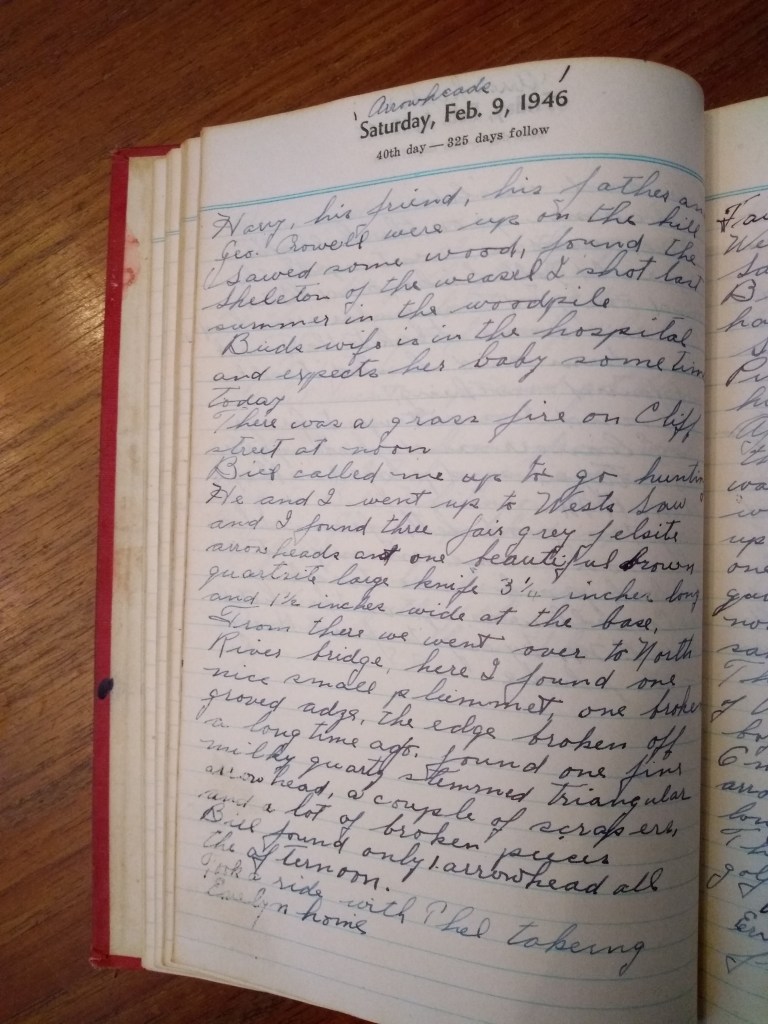 Arrowheads
Saturday, Feb. 9, 1946
40th day — 325 days follow
Harry, his friend, his father an
Geo. Crowell were up on the hill
Sawed some wood, found the
skeleton of the weasel I shot last
summer in the woodpile
Buds wife is in the hospital
and expects her baby some tim
today
There was a grass fire on Cliff
street at noon
Bill called me up to go huntin
He and I went up to Wests Saw
and I found three fair grey felsite
arrowheads and one beautiful brown
quartrite large knife 3 1/4 inches long
and 1 1/2 inches wide at the base.
From there we went over to North
River bridge, here I found one
nice small plummet, one broke
groved adze, the edge broken off
a long time ago. found one fine
milky quartz stemmed triangular
arrowhead, a couple of scrapers,
and a lot of broken pieces
Bill found only 1 arrowhead all
the afternoon.
Took a ride with Phil takeing
Evelyn home
We
Sa
B
ha
S
Pi
h
th
wa
w
up
one
qua
no
sa
Th
of
bo
arro
lon
Th